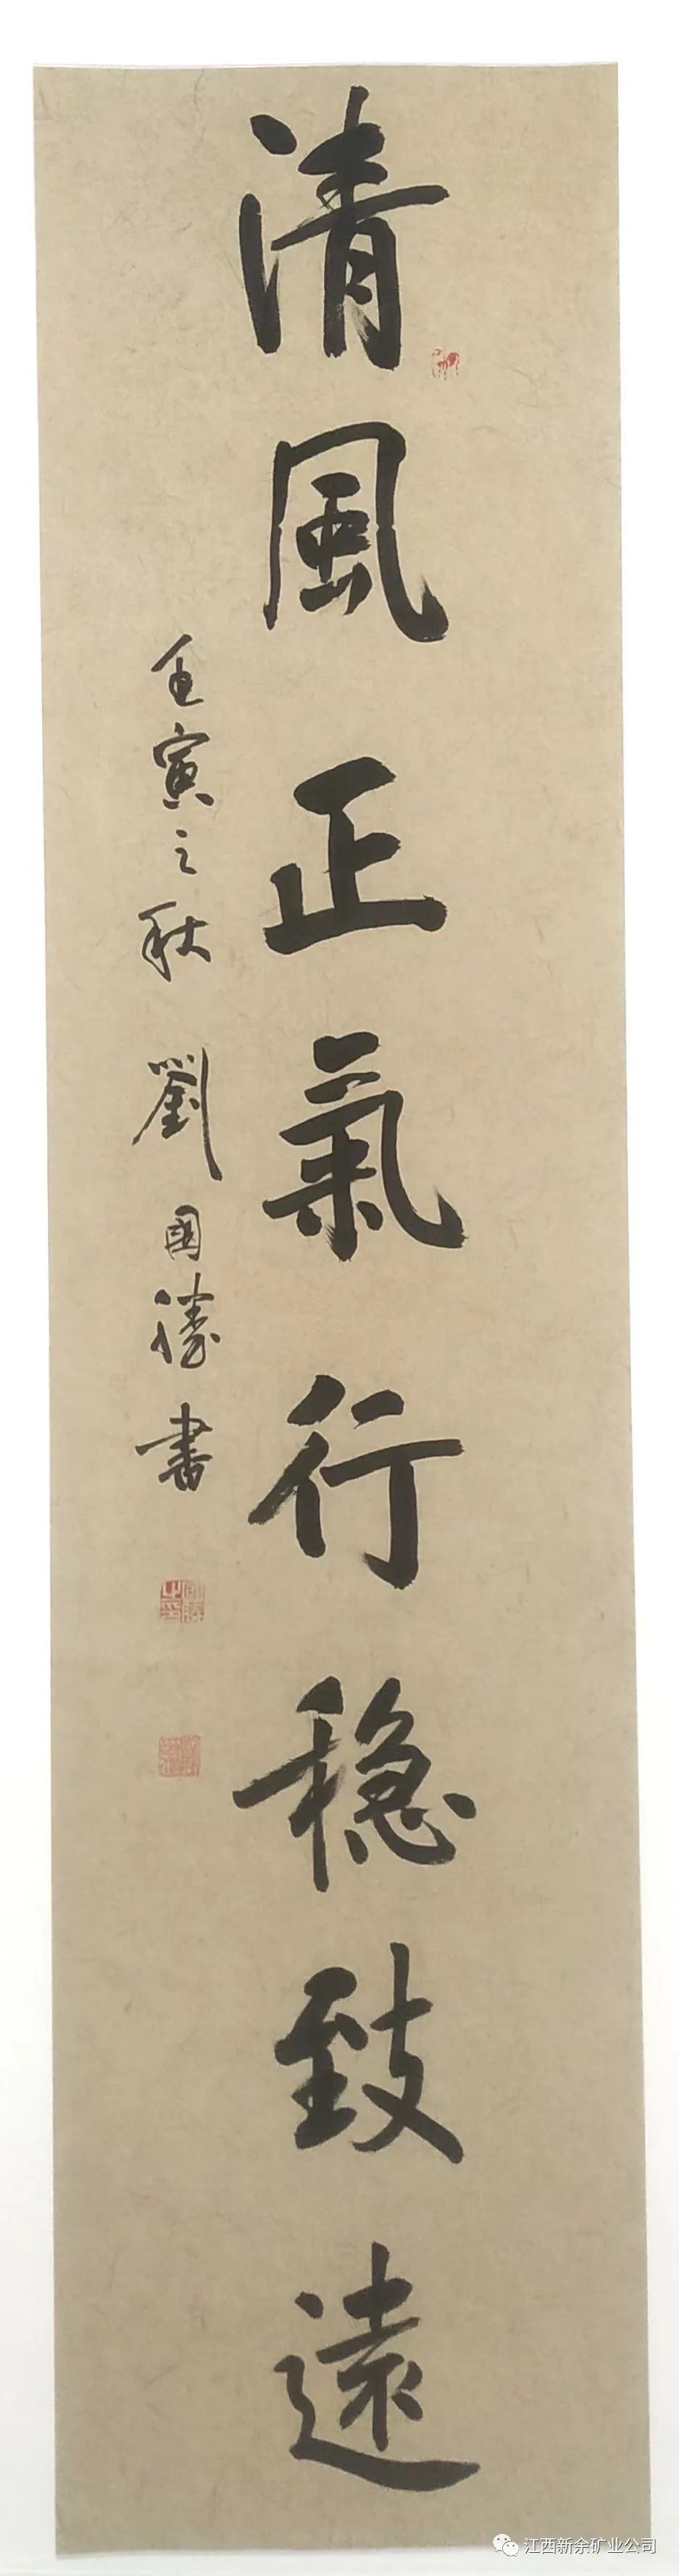 清風正氣行穩致遠
壬寅之秋 劉國勝書
江西新余矿业公司